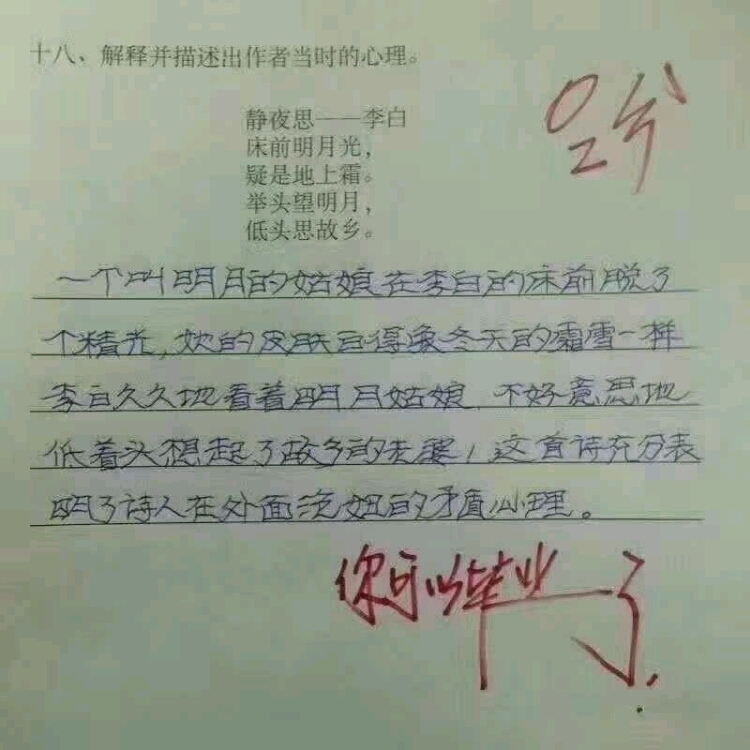 十八、解释并描述出作者当时的心理。
0分
静夜思——李白
床前明月光，
疑是地上霜。
举头望明月，
低头思故乡。
一个叫明月的姑娘在李白的床前脱了
个精光，她的皮肤白得象冬天的霜雪一样
李白久久地看着明月姑娘，不好意思地
低着头想起了故乡的老婆，这首诗充分表
明了诗人在外面泡妞的矛盾心理。
你可以毕业了.